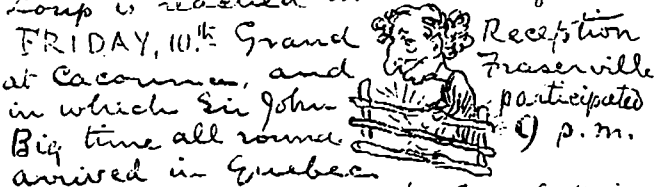 Loup is reached
FRIDAY, 10.th Grand Reception
at Cacouna, and Fraserville
in which Sir John participated
Big time all round 9 p.m.
arrived in Quebec